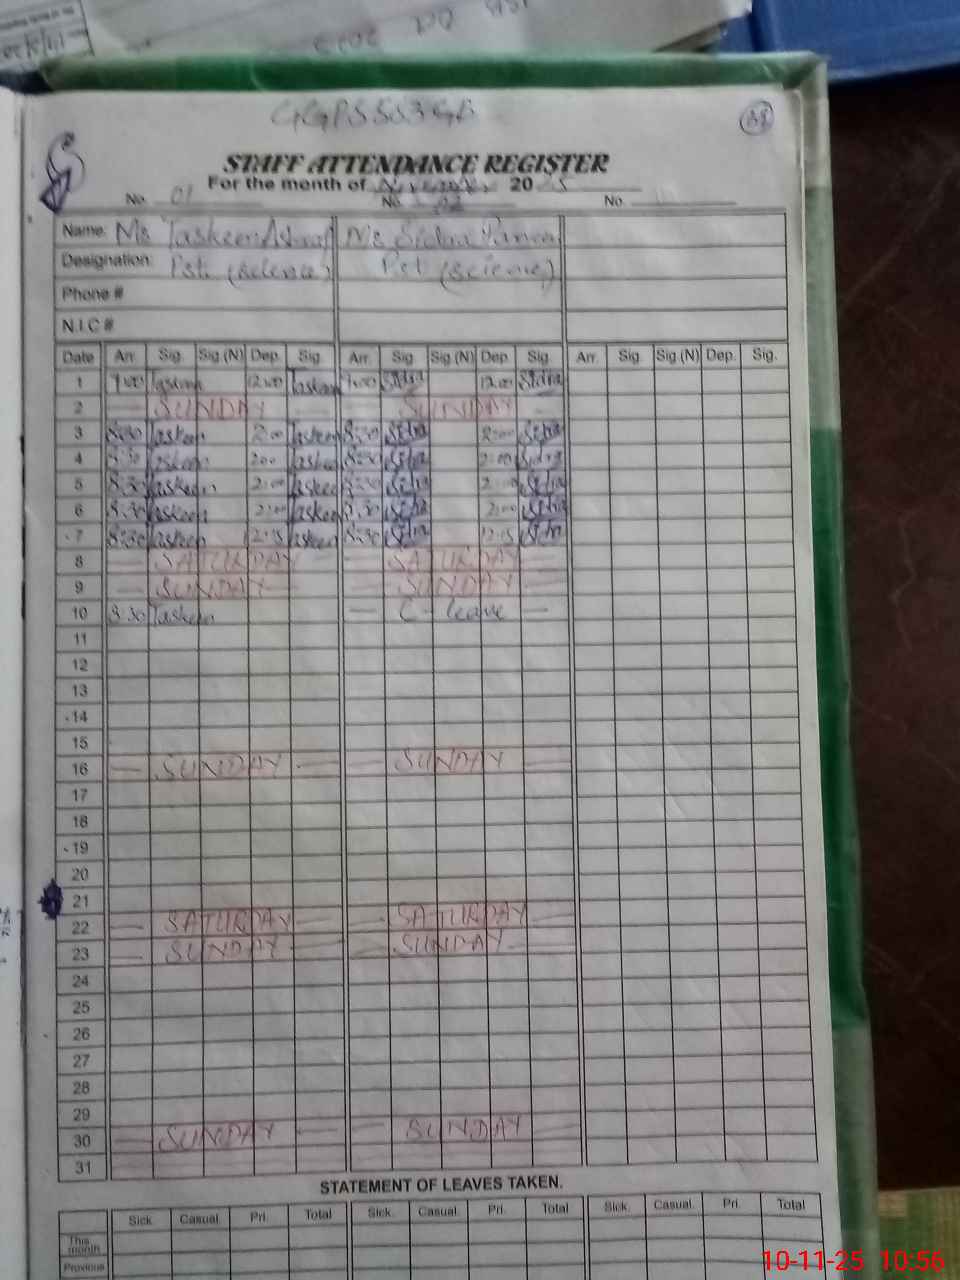 38
STAFF ATTENDANCE REGISTER
For the month of November 2025
No. 01 No. 02 No.
Name: Ms Taskeen Ashraf Ms Sidra
Designation: Pst (Science) Pst (Science)
Phone #
N.I.C #
Date Arr. Sig. Sig (N) Dep. Sig. Arr. Sig Sig (N) Dep Sig. Arr. Sig. Sig (N) Dep. Sig.
1 9:00 Taskeen 12:00 Taskeen 9:00 Sidra 12:00 Sidra
2 — SUNDAY — SUNDAY —
3 8:30 Taskeen 2:00 Taskeen 8:30 Sidra 2:00 Sidra
4 8:30 Taskeen 2:00 Taskeen 8:30 Sidra 2:00 Sidra
5 8:30 Taskeen 2:00 Taskeen 8:30 Sidra 2:00 Sidra
6 8:30 Taskeen 2:00 Taskeen 8:30 Sidra 2:00 Sidra
7 8:30 Taskeen 12:15 Taskeen 8:30 Sidra 12:15 Sidra
8 — SATURDAY — SATURDAY —
9 — SUNDAY — SUNDAY —
10 8:30 Taskeen — C - leave —
11
12
13
14
15
16 — SUNDAY — — SUNDAY —
17
18
19
20
21
22 — SATURDAY — SATURDAY —
23 — SUNDAY — SUNDAY —
24
25
26
27
28
29
30 — SUNDAY — — SUNDAY —
31
STATEMENT OF LEAVES TAKEN.
Sick. Casual. Pri. Total Sick. Casual. Pri. Total Sick. Casual. Pri. Total
This month
Previous
10-11-25 10:56